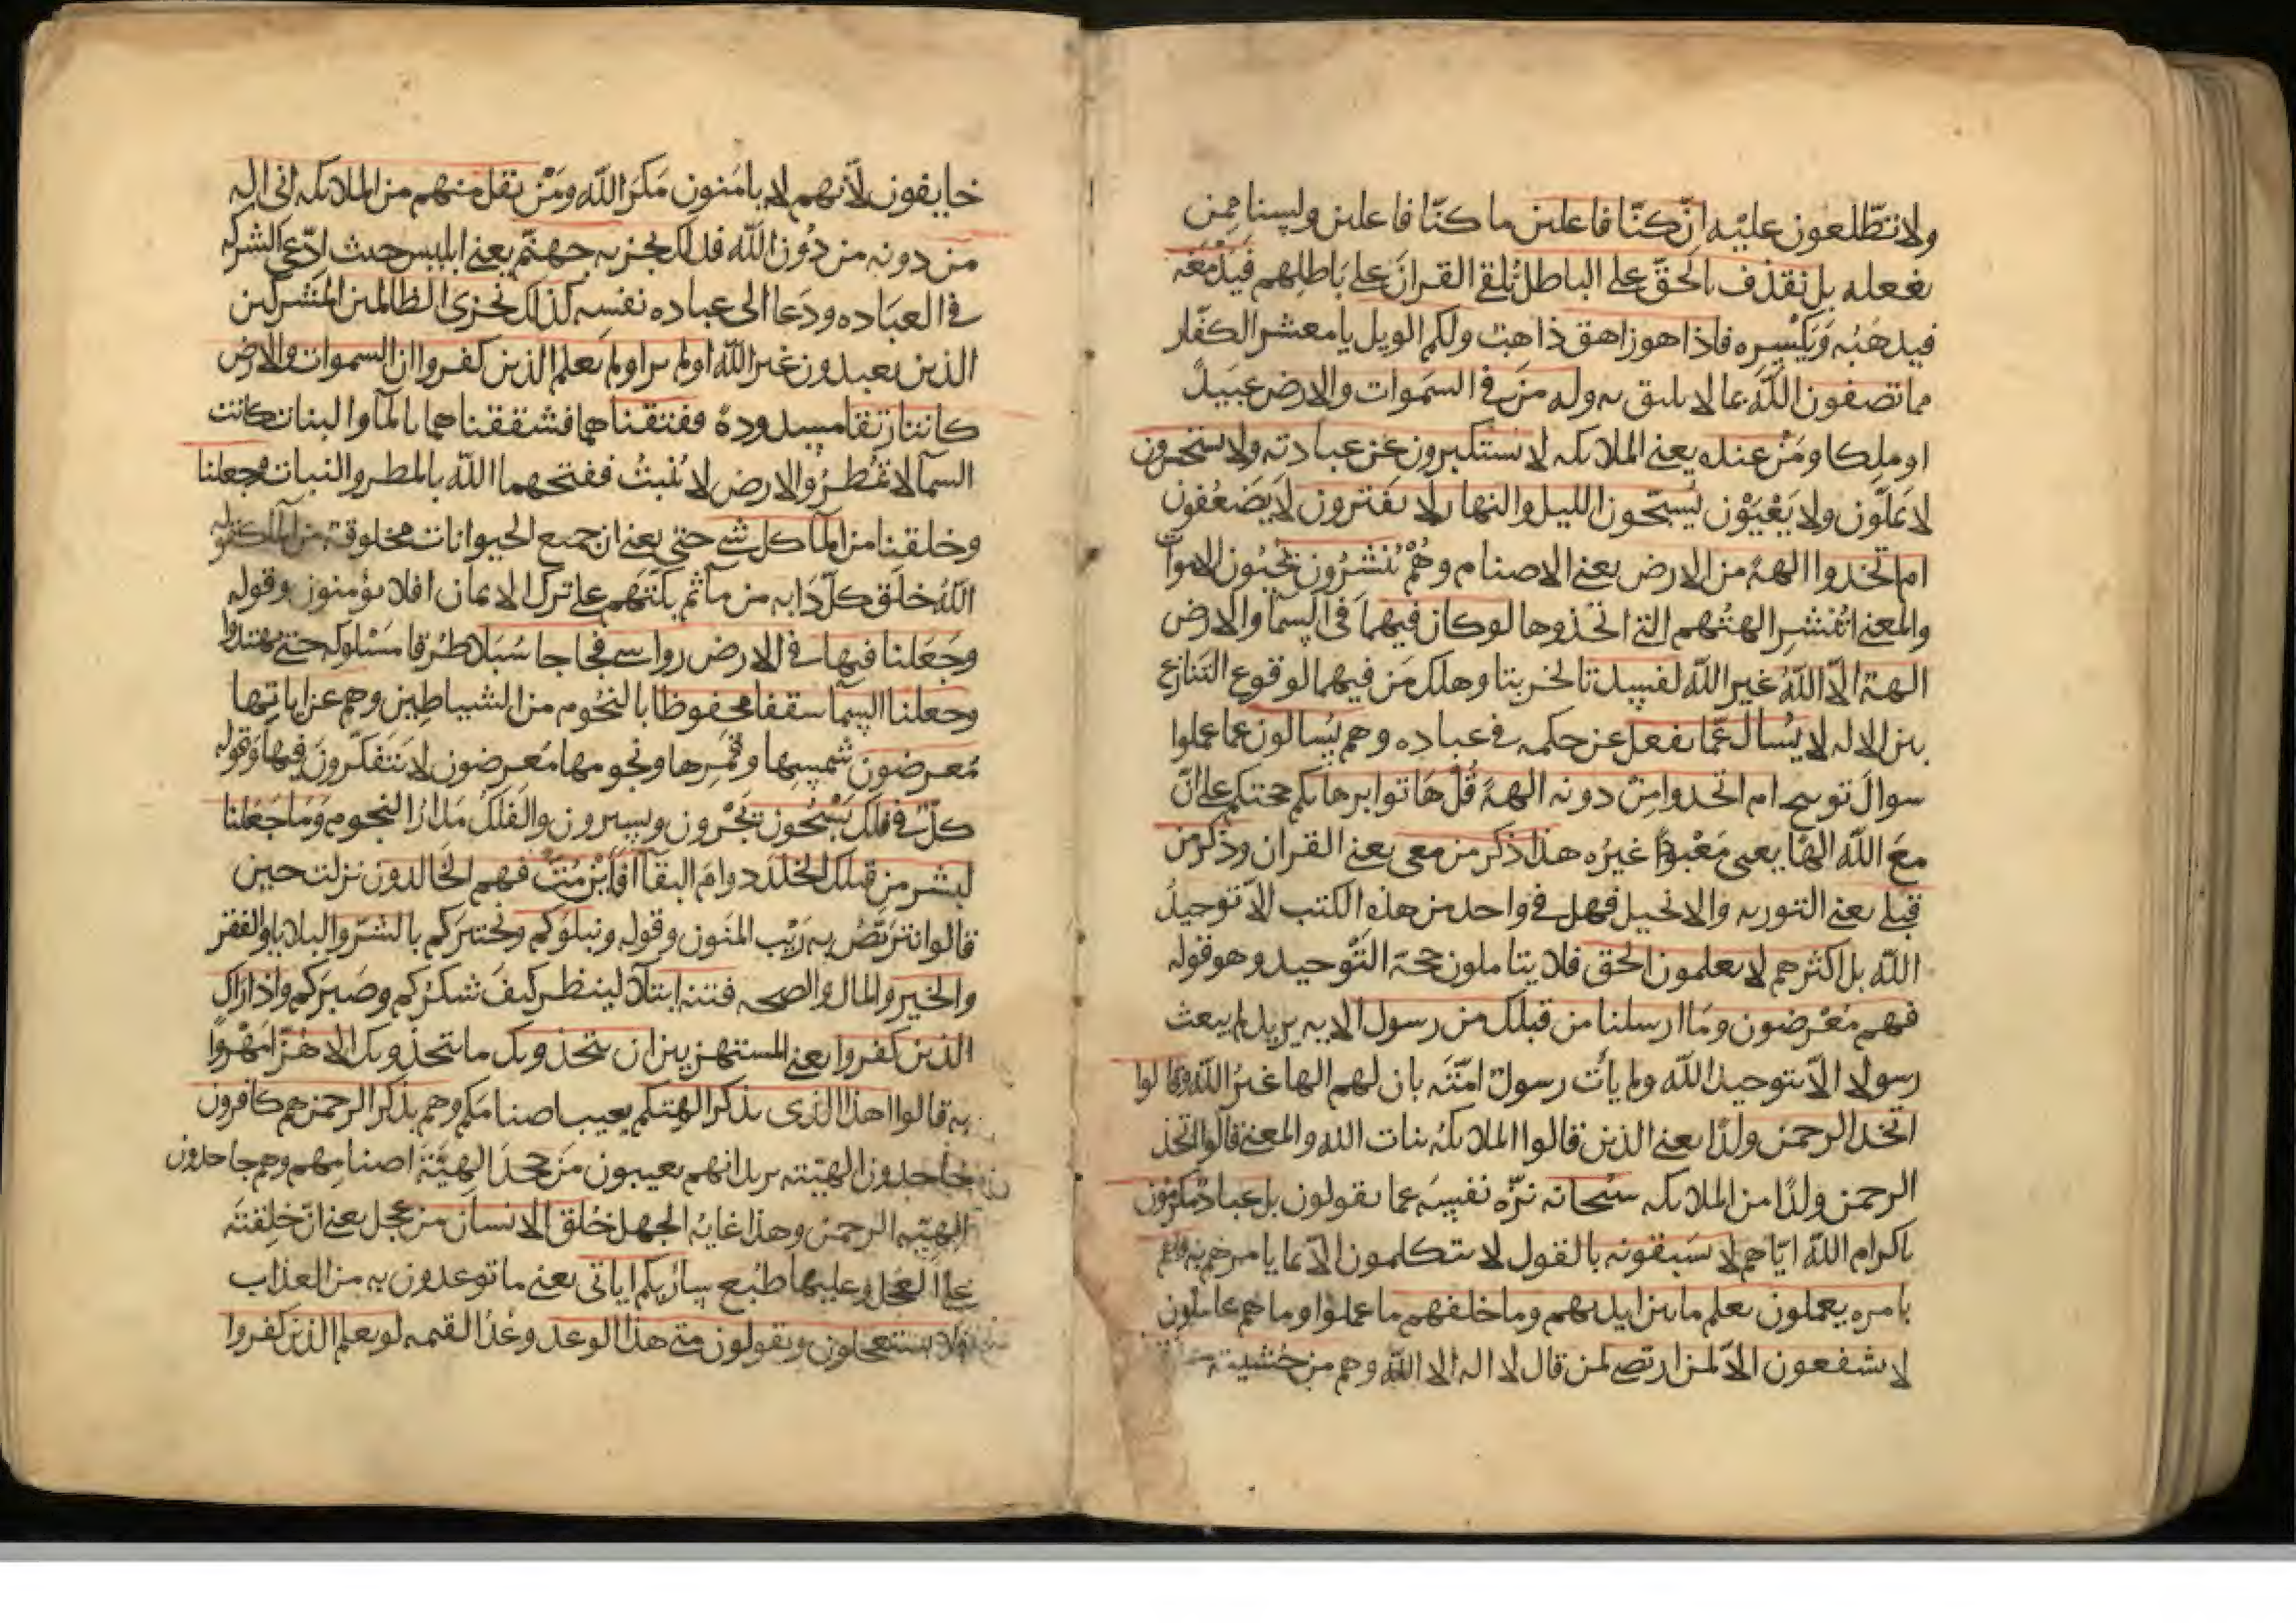 ولا تطّلعون عليه ان كنّا فاعلين ما كنّا فاعلين ولسنا ممن
يفعله بل نقذف بالحقّ على الباطل نُلقي القرانَ على باطلهم فيدمغه
فيذهبُه ويكسره فاذا هو زاهق ذاهبٌ ولكم الويل يا معشر الكفّار
مما تصفون اللّه بما لا يليق به وله من في السموات والارض عبيدًا
او ملكا ومَنْ عنده يعني الملايكه لا يستكبرون عن عبادته ولا يستحسرون
لا يملّون ولا يَعْيَوْن يُسبّحون الليل والنهار لا يفترون لا يَضعُفون
ام اتخذوا الهةً من الارض يعني الاصنام وهُمْ يُنشرُون يُحيُون الاموات
والمعنى اتُنشر الهتُهم التي اتخذوها لو كان فيهما في السمآ والارض
الهة الّا اللّهُ غير اللّه لفسدتا لخربتا وهلك مَن فيهما لوقوع التنازع
بين الالهه لا يُسأل عمّا يفعل عن حكمه في عباده وهم يُسالون عما عملوا
سوالَ توبيخ ام اتخذوا مِن دونه الهةً قُل هَاتوا برهانكم حجتكم على انّ
معَ اللّه الهًا يعني معبودًا غيرُه هذا ذكر من معي يعني القران وذكر من
قبلي يعني التوريه والانجيل فهل في واحد من هذه الكتب الّا توحيدُ
اللّه بل اكثرهم لا يعلمون الحق فلا يتاملون حجة التّوحيد وهو قوله
فهم مُعْرضون وما ارسلنا من قبلك من رسول الايه يريد لم يبعث
رسولا الّا بتوحيد اللّه ولم يأت رسولٌ امّتَه بان لهم الها غيرُ اللّه وقالوا
اتخذ الرحمن ولدًا يعني الذين قالوا الملايكةُ بنات اللّه والمعنى قالوا اتخذ
الرحمن ولدًا من الملايكه سُبحانه نزّه نفسَه عما يقولون بل عبادٌ مكرمون
باكرام اللّه ايّاهم لا يَسبقونه بالقول لا يتكلمون الّا بما يامرهم به وهم
بامره يعملون يعلم ما بين ايديهم وما خلفهم ما عملوا وما هم عاملون
لا يشفعون الّا لمن ارتضى لمن قال لا اله الا اللّه وهم من خشيته
خايفون لأنّهم لا يامَنون مَكرَ اللّه ومَنْ يقل منهم من الملايكه اني اله
من دونه من دُون اللّه فذلك نجزيه جهنّم يعني ابليس حيث ادّعى الشركه
في العبَاده ودَعا الى عباده نفسِه كذلك نجزي الظالمين المشركين
الذين يعبدون غير اللّه اولم ير اولم يعلم الذين كفروا ان السموات والارض
كانتا رتقا مسدودةً ففتقناهما فشققناهما بالمآ والنبات كانت
السمآ لا تُمطرُ والارض لا تُنبتُ ففتحهما اللّه بالمطر والنبات وجعلنا
وخلقنا من المآ كل شي حيّ يعني ان جميع الحيوانات مخلوقة من المآ كقوله
اللّهُ خلَق كلّ دَابه من مآ ثم بكّتَهم على ترك الايمان افلا يؤمنون وقوله
وجَعلنا فيها في الارض رواسي فجاجا سُبَلا طُرقا مَسْلوكه حتى يهتدوا
وجعلنا السمآ سقفا محفوظا بالنجُوم من الشياطين وهم عن اياتها
مُعرضون شمسها وقمرها ونجومها مُعرضون لا يَتفكّرونَ فيها وقوله
كلّ في فلك يَسْبَحُون يَجْرون ويسيرون والفلك مَدارُ النجوم وَمَا جَعَلنا
لبشرٍ من قبلك الخلدَ دوامَ البقآ أفَأَئِنْ مُتَّ فهم الخالدون نزلت حين
قالوا نتربّصُ به رَيْب المنون وقوله ونبلوكم ونختبركم بالشرّ والبلايا والفقر
والخير والمال والصحه فتنه ابتلآ لينظر كيفَ شكرُكم وصَبركم واذا رَاك
الذين كفروا يعني المستهزيين ان يتخذونك ما يتخذونك الا هزُؤًا مَهْزوًّا
به قالوا اهذا الذي يذكر الهتكم يعيب اصنامَكم وهم بذكر الرحمن هم كافرون
جاحدون الهيّته يريد انهم يعيبون مَن جحدَ الهيّةَ اصنامهم وهم جاحدون
الهيّه الرحمن وهذا غايه الجهل خُلق الانسان من عجل يعني انّ خِلقتَه
على العجل وعليها طُبع ساُريكم اياتي يعني ما توعدون به من العذاب
فلا تستعجلون ويقولون متى هذا الوعد وعْدُ القيمه لو يعلم الذين كفروا